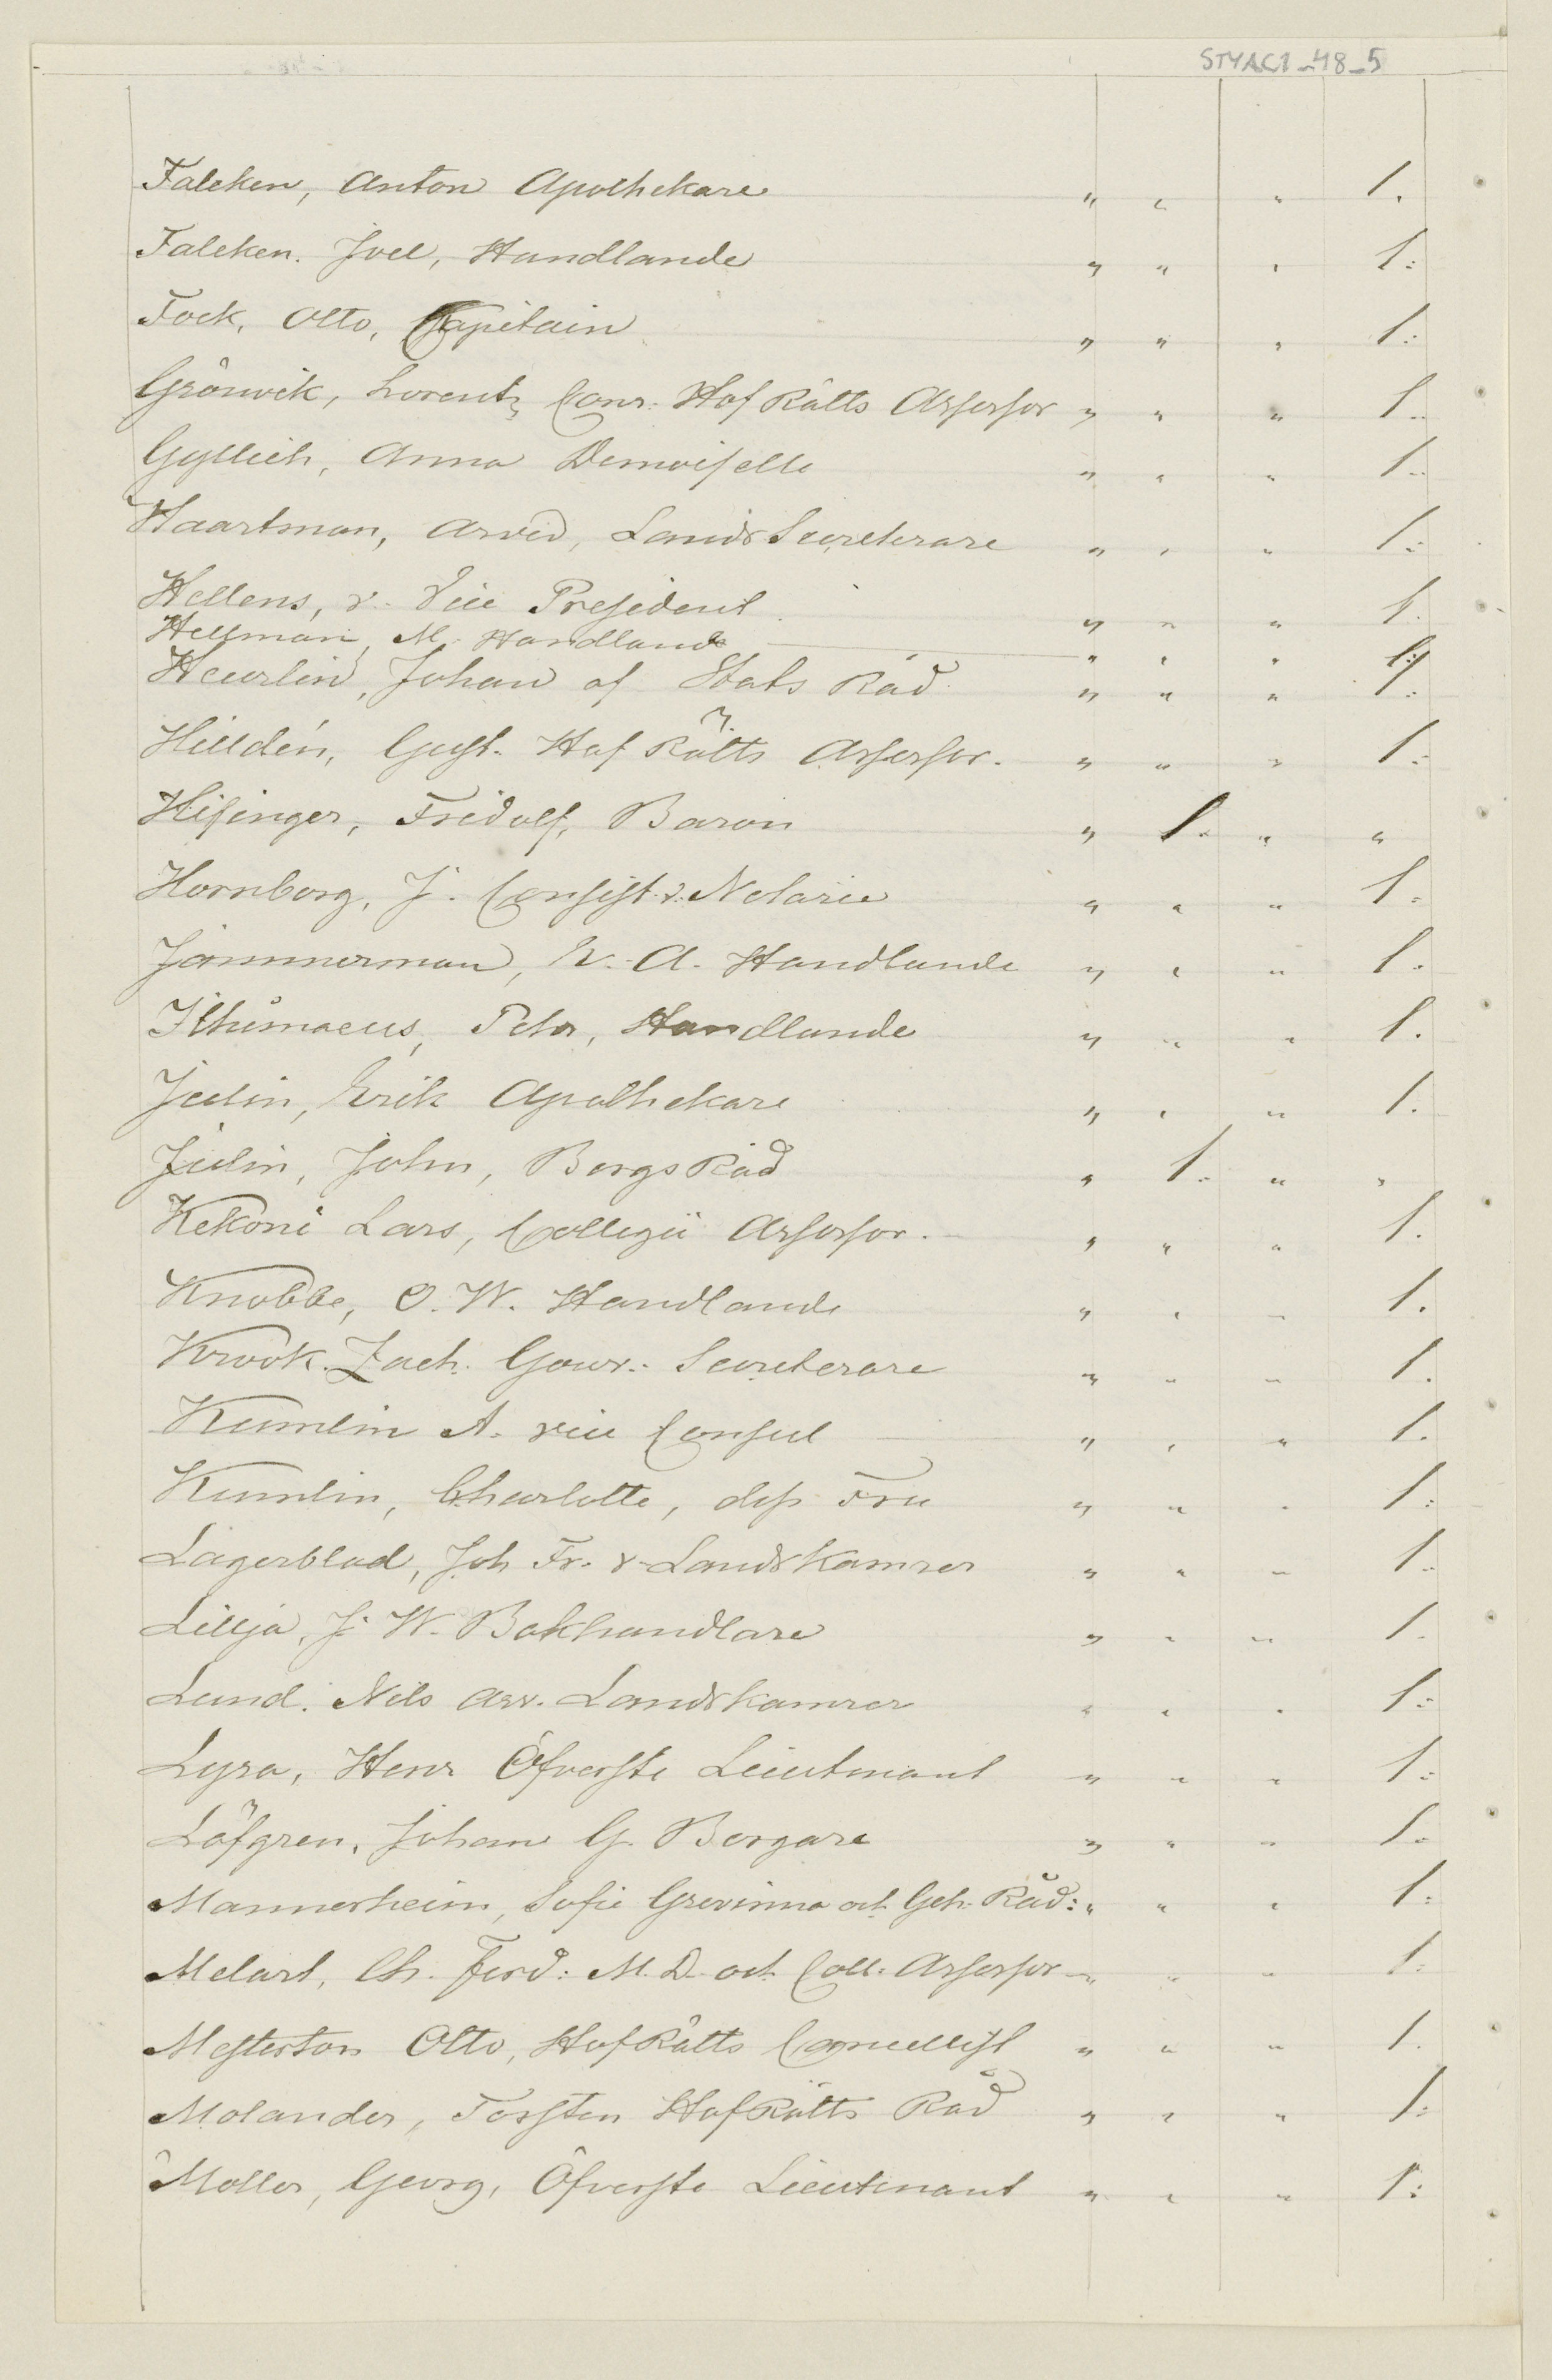 STYAC1_48_5
Falcken, Anton Apothekare " " " 1.
Falcken. Joel, Handlande " " " 1.
Fock, Otto, Kapitain " " " 1.
Grönvik, Lorentz Canr. Hof Rätts Assessor " " " 1.
Gyllich, Anna Demoiselle " " " 1.
Haartman, Arvid, Lands Secreterare " " " 1.
Hellens, v. Vice President " " " 1.
Hellman, M. Handlande " " " 1.
Heurlin, Johan af Stats Råd " " " 1.
Hilldén, Gust. Hof Rätts Assessor. " " " 1.
Hisinger, Fridolf, Baron " 1. " "
Hornborg, J. Consist. v. Notarie " " " 1.
Jämmerman, E. A. Handlande " " " 1.
Ithimaeus, Petr, Handlande " " " 1.
Julin, Erik Apothekare " " " 1.
Julin, John, Bergs Råd " 1. " "
Kekoni Lars, Collegii Assessor. " " " 1.
Knobbe, O. W. Handlande " " " 1.
Krook. Zach. Gouv. Secreterare " " " 1.
Kumlin A. vice Consul " " " 1.
Kumlin, Charlotte, dess Fru " " " 1.
Lagerblad, Joh Fr. v. Lands Kamrer " " " 1.
Lillja, J. W. Bokhandlare " " " 1.
Lund. Nils Arv. Landskamrer " " " 1.
Lyra, Henr Öfverste Lieutenant " " " 1.
Löfgren, Johan G. Borgare " " " 1.
Mannerheim, Sofie Grevinna och Geh. Råd: " " " 1.
Melart, Ch. Ferd: M. D. och Coll. Assessor " " " 1.
Mesterton Otto, Hof Rätts Cancellist " " " 1.
Molander, Torsten Hof Rätts Råd " " " 1.
Möller, Georg, Öfverste Lieutenant " " " 1.